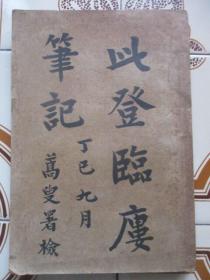 此登臨廔
筆記
丁巳九月
萬叟署檢